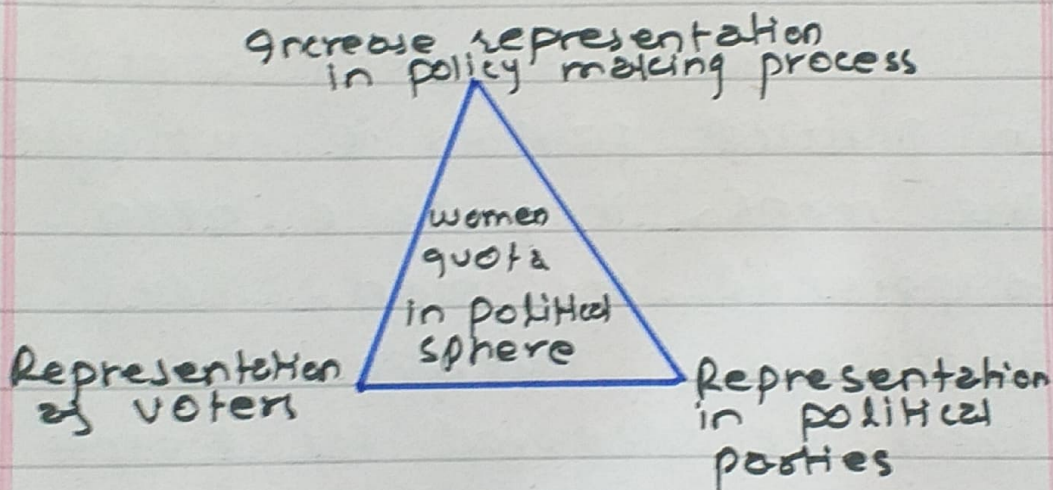 Increase representation
in policy making process
women
quota
in political
sphere
Representation
as voters
Representation
in political
parties